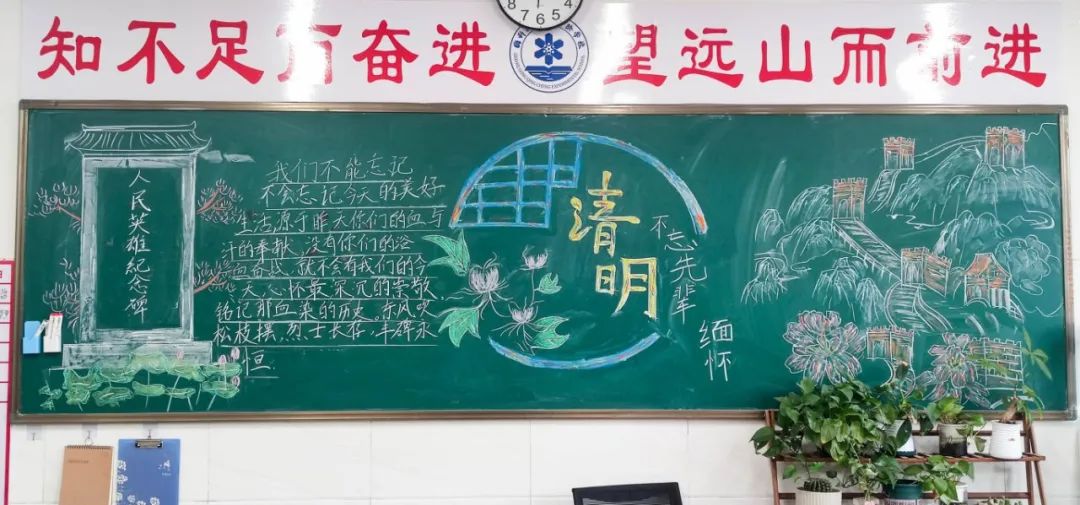 知不足而奋进
望远山而前进
8 7 6 5 4
人民英雄纪念碑
我们不能忘记
不会忘记今天的美好
生活源于昨天你们的血与
汗的奉献、没有你们的浴
血奋战、就不会有我们的今
天、心怀最深沉的崇敬、
铭记那血染的历史。东风吹
松枝摆、烈士长存,丰碑永
恒.
清明
不忘先辈
缅怀